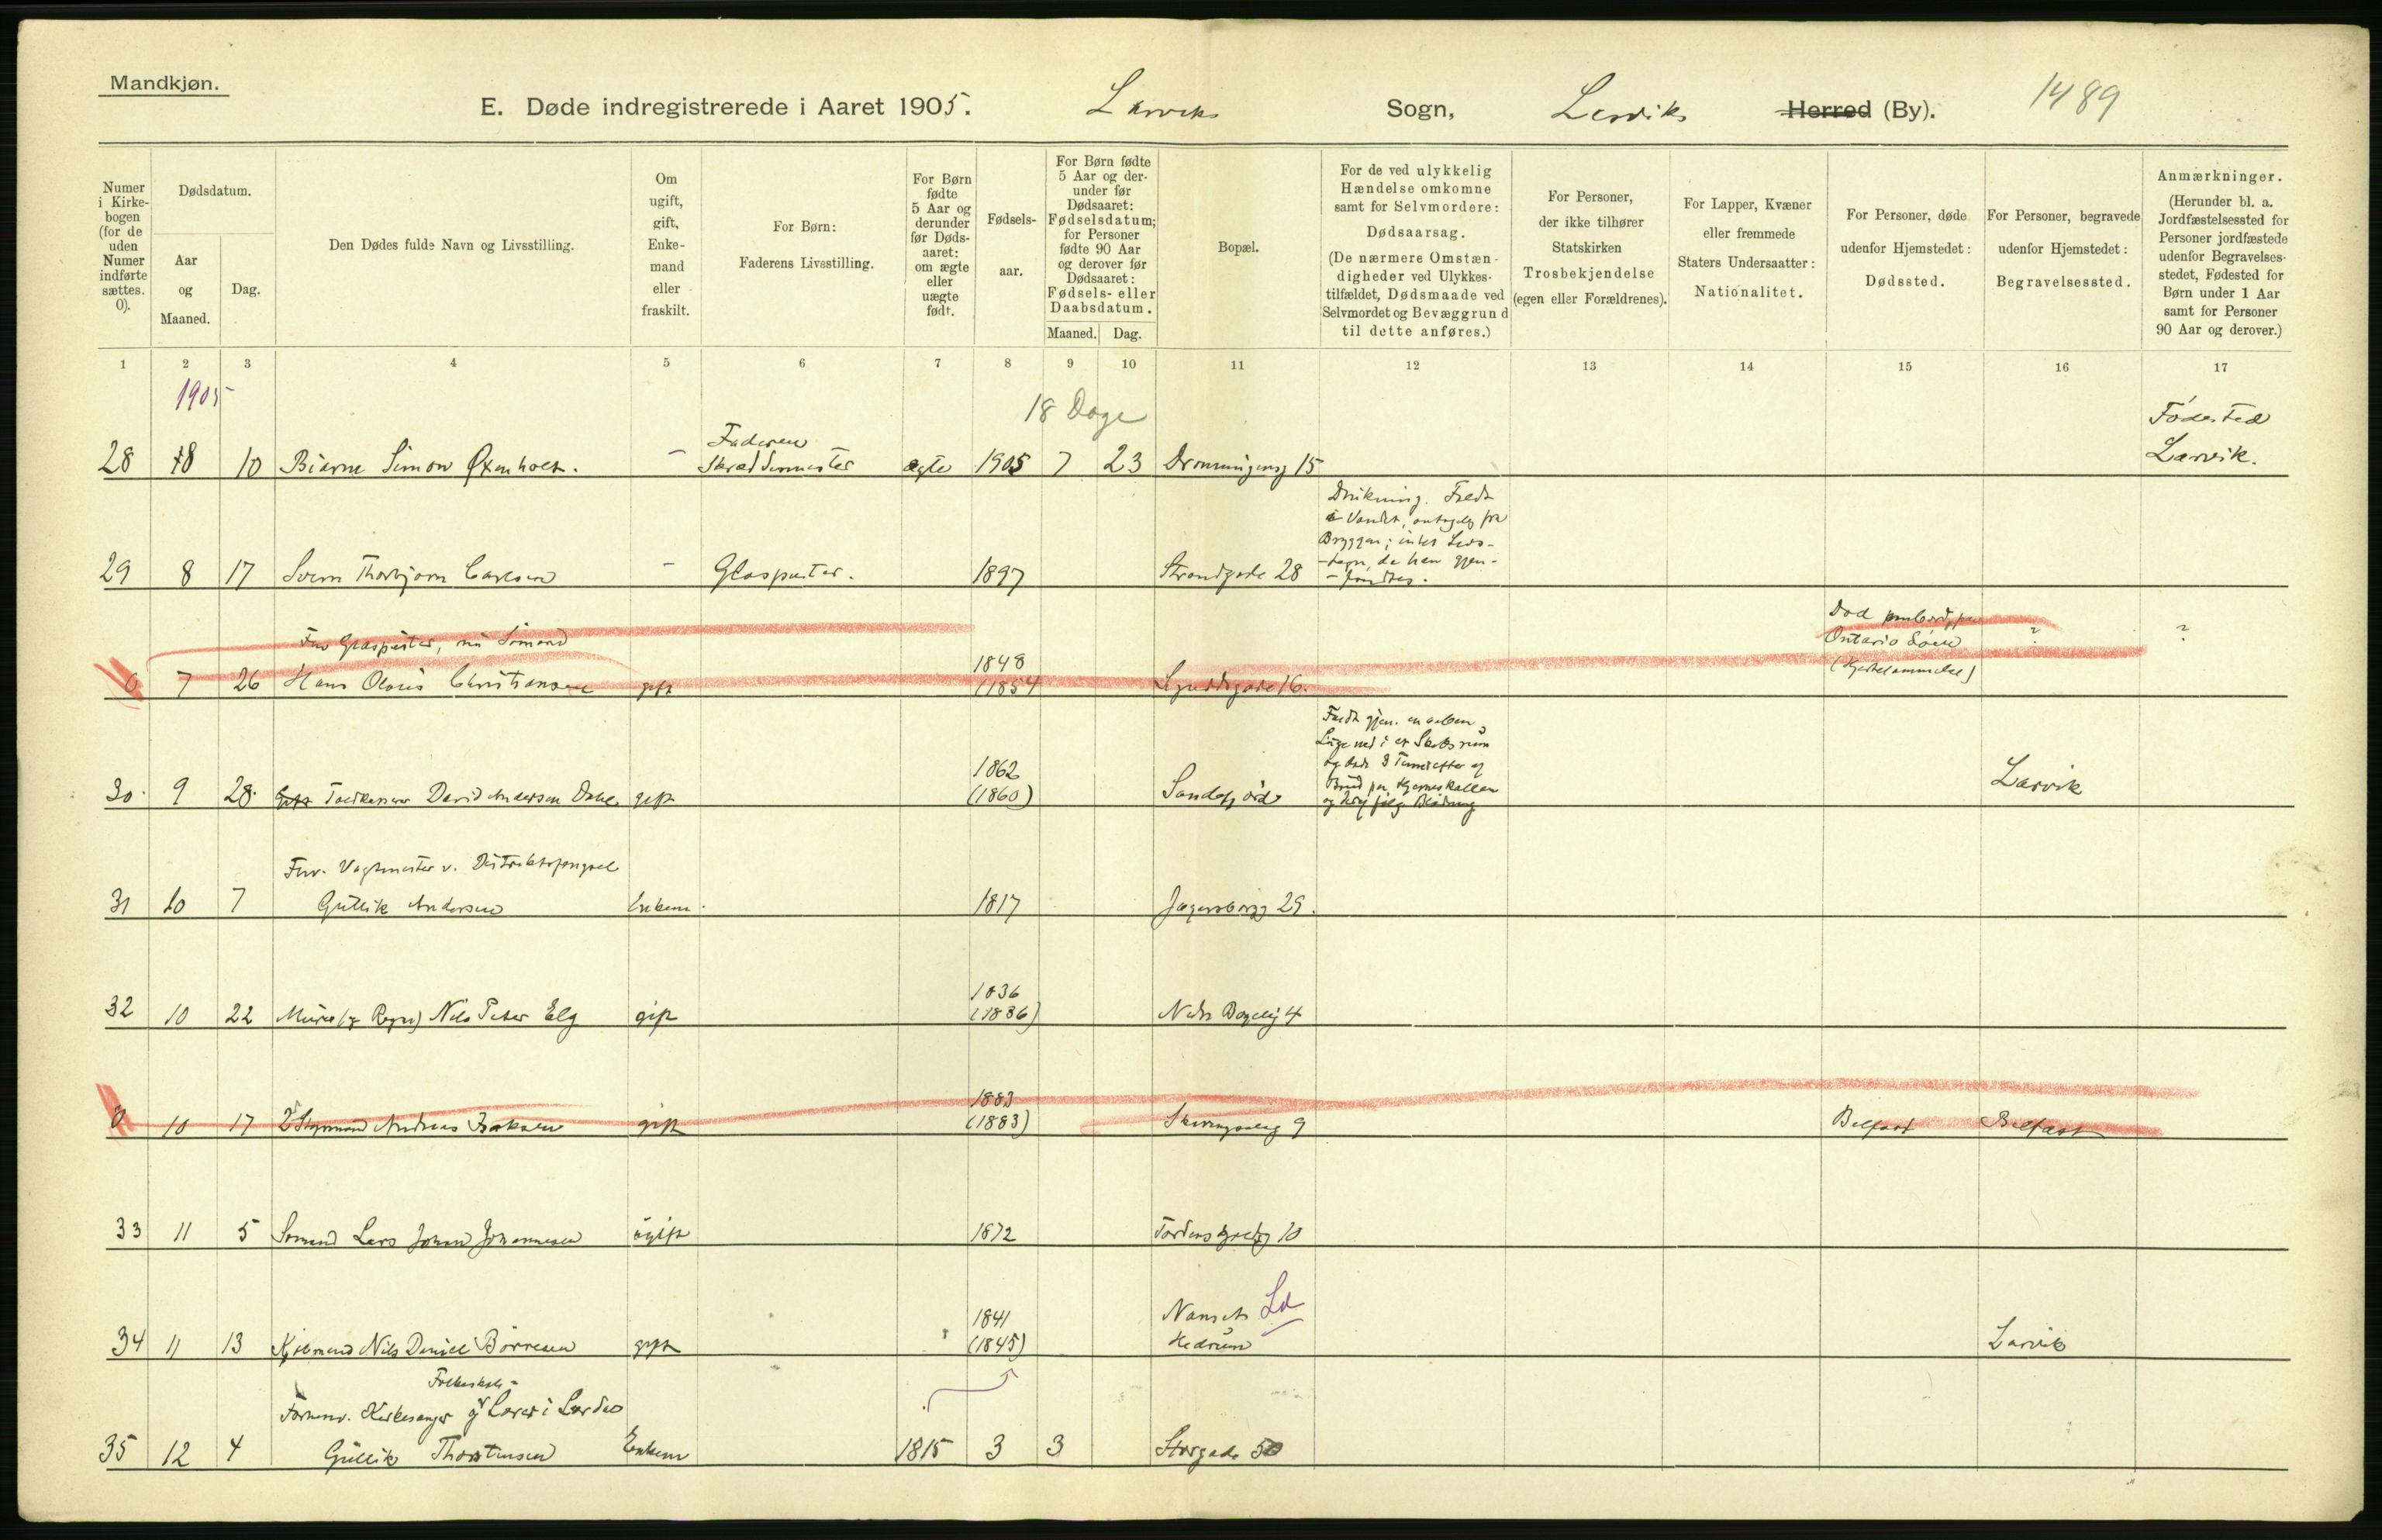 Mandkjøn.
E. Døde indregistrerede i Aaret 1905. Larviks Sogn, Larviks Herred (By). 1489
Numer i Kirkebogen (for de uden Numer indførte sættes. 0).
Dødsdatum.
Aar og Maaned.
Dag.
Den Dødes fulde Navn og Livsstilling.
Om ugift, gift, Enkemand eller fraskilt.
For Børn:
Faderens Livsstilling.
For Børn fødte 5 Aar og derunder før Dødsaaret: om ægte eller uægte født.
Fødselsaar.
For Børn fødte 5 Aar og derunder før Dødsaaret: Fødselsdatum; for Personer fødte 90 Aar og derover før Dødsaaret: Fødsels- eller Daabsdatum.
Maaned. Dag.
Bopæl.
For de ved ulykkelig Hændelse omkomne samt for Selvmordere:
Dødsaarsag.
(De nærmere Omstændigheder ved Ulykkestilfældet, Dødsmaade ved Selvmordet og Bevæggrund til dette anføres.)
For Personer, der ikke tilhører Statskirken
Trosbekjendelse
(egen eller Forældrenes).
For Lapper, Kvæner eller fremmede Staters Undersaatter:
Nationalitet.
For Personer, døde udenfor Hjemstedet:
Dødssted.
For Personer, begravede udenfor Hjemstedet:
Begravelsessted.
Anmærkninger.
(Herunder bl. a. Jordfæstelsessted for Personer jordfæstede udenfor Begravelsesstedet, Fødested for Børn under 1 Aar samt for Personer 90 Aar og derover.)
1 2 3 4 5 6 7 8 9 10 11 12 13 14 15 16 17
1905
18 Dage
Fødested
Faderen
28 8 10 Bjarne Simon Øxenholt. - ægte 1905 7 23 Dronningensg 15 Larvik.
Drukning. Faldt
i Vandet, antagelig fra
Bryggen; intet Livs-
29 8 17 Svern Thorbjørn Carlsen - Glaspuster. 1897 Strandgade 28 -tegn, da han gjen-
-fandtes.
Død ombord, paa
Fhv Glaspuster, nu Sømand Ontario Søen ? ?
1848
0 7 26 Hans Olaus Christiansen gift (1854 16. (Hjertelammelse)
Faldt gjen. en aaben
Luge ned i et Skibsrum
1862
30. 9 28. Toldkasserer David Andersen gift (1860) Sandefjord Larvik
Fhv. Vagtmester v. Distriktsfængsel
31 10 7 Gullik Andersen Enkem. 1817 Jegersborgg 29.
1836
32 10 22 Murer Nils Peter Elg gift (1836) Nedre 4
1883
0 10 17 2 Styrmand Andreas Isaksen gift (1883) 9 Belfast Belfast
33 11 5 Sømand Lars Johan Johannesen ugift 1872 Tordenskjoldsg 10
1841 Nanset Ld
34 11 13 Kjøbmand Nils Daniel Børresen gift (1845) Hedrum Larvik
Folkeskole-
Forhenv. Kirkesanger og Lærer i Lardal
35 12 4 Gullik Thorstensen Enkem 1815 3 3 Storgade 50